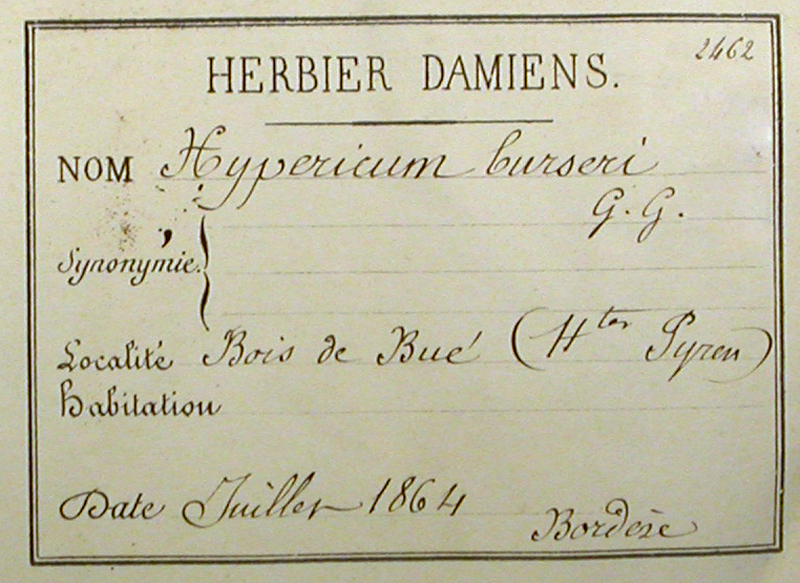 2462
HERBIER DAMIENS.
NOM Hypericum burseri
G. G.
Synonymie.
Localité Bois de Bué (Htes Pyren)
habitation
Date Juillet 1864
Bordère